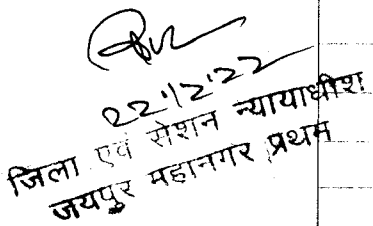 22/12/22
जिला एवं सेशन न्यायाधीश
जयपुर महानगर प्रथम